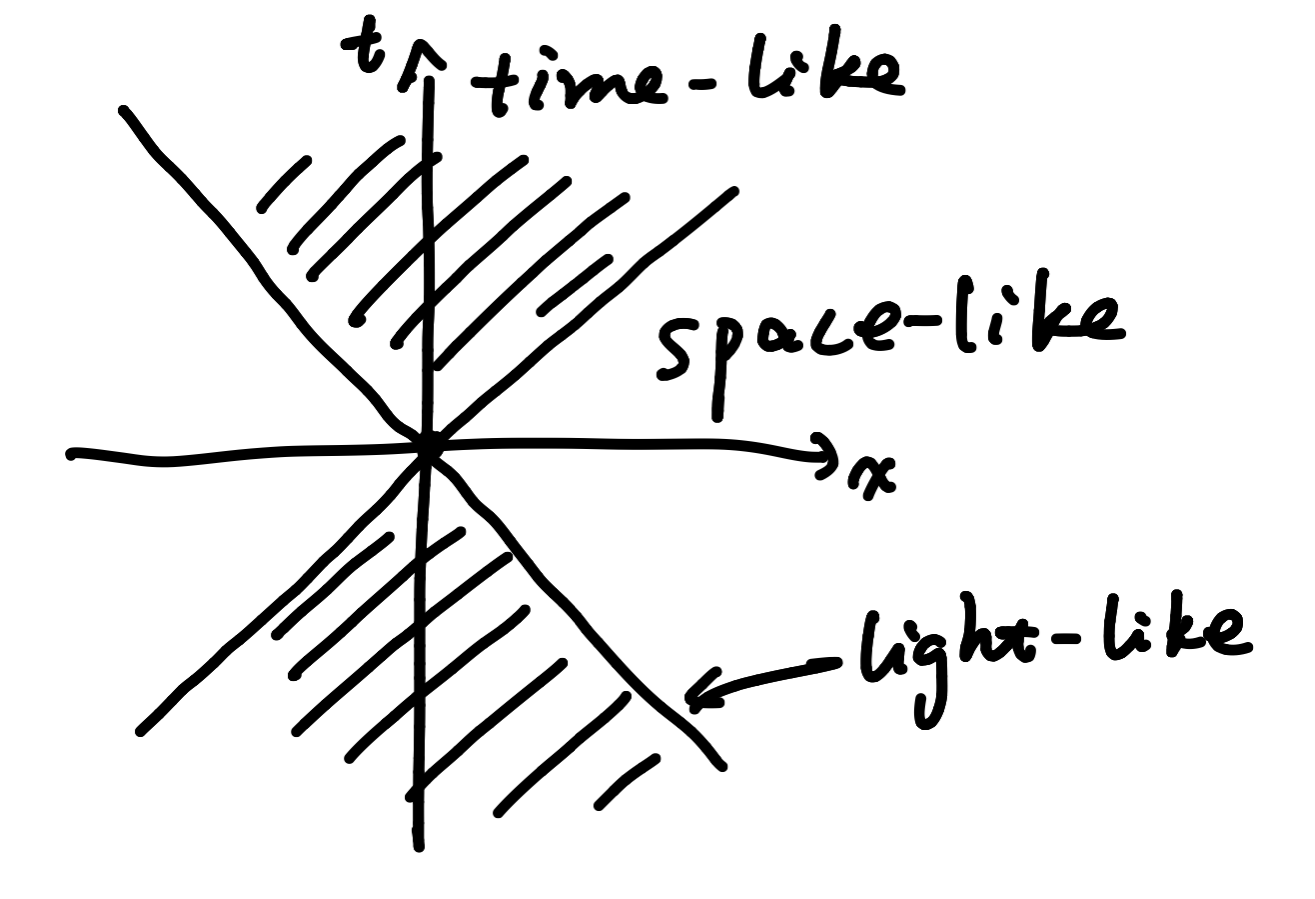 t
time-like
space-like
x
light-like